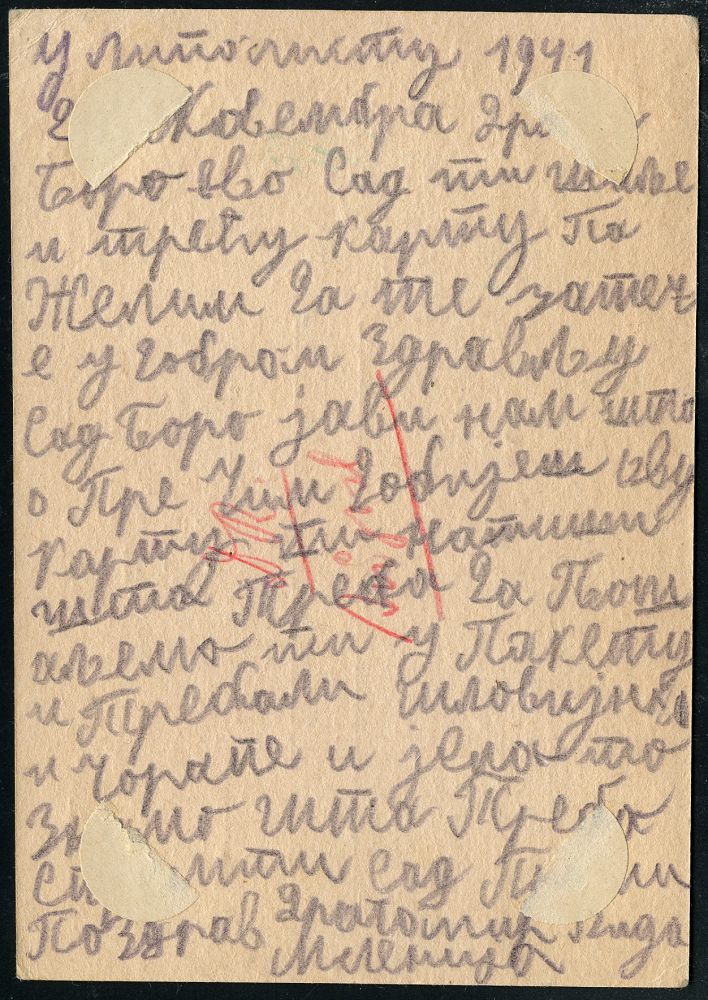 у липолисту 1941
Новембра
Боро Ево Сад ти шаље
и трећу карту Па
Желим да те затеч
е у добром Здрављу
Сад Боро јави нам што
о Пре Чим добијеш ову
карту ти напиши
шта Треба да Пош
аљемо ти у Пакету
и Требали
и чорапе и јела то
шта Треба
сад
Поздрав Драгомир Вида
Миленија